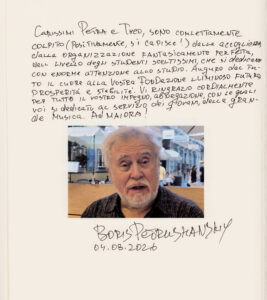 Carissimi Petra e Theo, sono completamente
colpito (positivamente, si capisce!) dalla accoglienza,
dalla organizzazione fantasticamente perfetta,
dal livello degli studenti sceltissimi, che si dedicano
con enorme attenzione allo studio. Auguro dal tut-
to il cuore alla vostra fondazione luminoso futuro,
prosperità e stabilità. Vi ringrazio cordialmente
per tutto il vostro impegno, con le quali
voi si dedicate al servizio dei giovani, della gran-
de Musica. Ad maiora!
Boris Petrushansky
04.08.2026